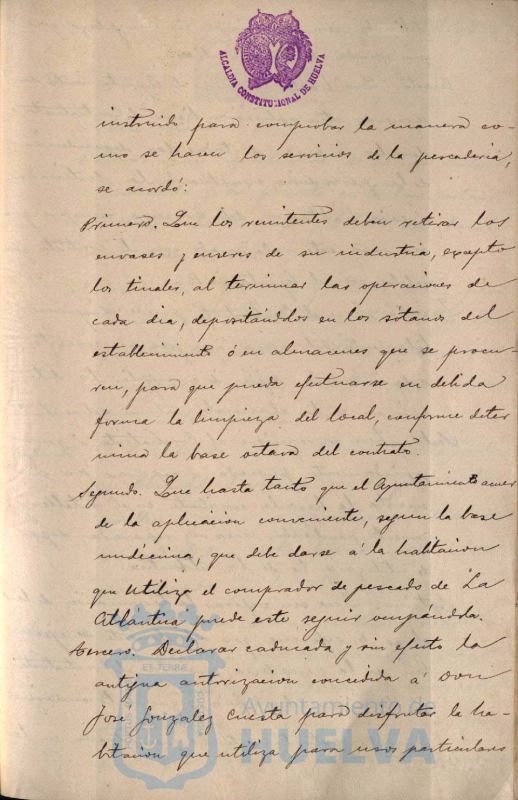 ALCALDIA CONSTITUCIONAL DE HUELVA
instruido para comprobar la manera co-
mo se hacen los servicios de la pescaderia,
se acordó:
Primero. Que los remitentes deben retirar los
envases y enseres de su industria, excepto
los tinales, al terminar las operaciones de
cada dia, depositándolos en los sótanos del
establecimiento ó en almacenes que se procu-
ren, para que pueda efectuarse en debida
forma la limpieza del local, conforme deter
mina la base octava del contrato.
Segundo. Que hasta tanto que el Ayuntamiento acuer
de la aplicacion conveniente, segun la base
undécima, que debe darse á la habitacion
que utiliza el comprador de pescado de "La
Atlántica" puede este seguir ocupándola.
Tercero. Declarar caducada y sin efecto la
antigua autorizacion concedida á Don
José Gonzalez Cuesta para disfrutar la ha-
bitacion que utiliza para usos particulares
Ayuntamiento de
HUELVA